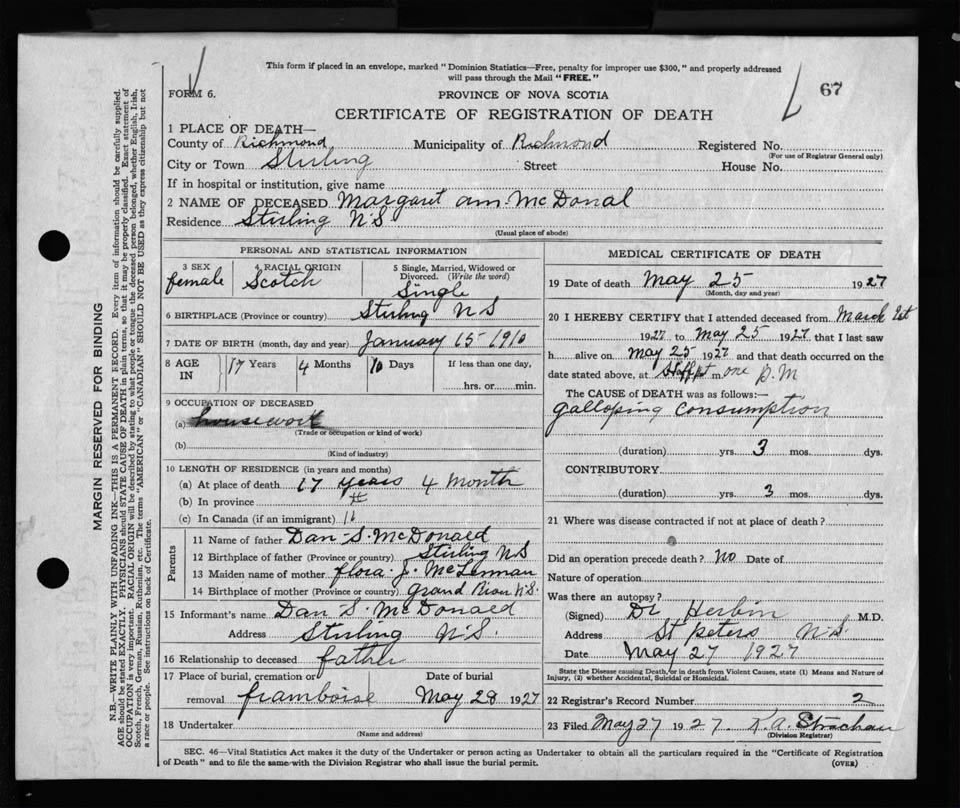 This form if placed in an envelope, marked "Dominion Statistics—Free, penalty for improper use $300," and properly addressed
will pass through the Mail "FREE."
67
FORM 6.
PROVINCE OF NOVA SCOTIA
CERTIFICATE OF REGISTRATION OF DEATH
1 PLACE OF DEATH—
County of Richmond Municipality of Richmond Registered No.
(For use of Registrar General only)
City or Town Stirling Street House No.
If in hospital or institution, give name
2 NAME OF DECEASED Margaret ann McDonal
Residence Stirling N S
(Usual place of abode)
PERSONAL AND STATISTICAL INFORMATION
3 SEX 4 RACIAL ORIGIN 5 Single, Married, Widowed or
Divorced. (Write the word)
female Scotch Single
6 BIRTHPLACE (Province or country) Stirling N S
7 DATE OF BIRTH (month, day and year) January 15 1910
8 AGE IN 17 Years 4 Months 10 Days If less than one day,
hrs. or min.
9 OCCUPATION OF DECEASED
(a) housework
(Trade or occupation or kind of work)
(b)
(Kind of industry)
10 LENGTH OF RESIDENCE (in years and months)
(a) At place of death 17 years 4 Month
(b) In province
(c) In Canada (if an immigrant)
Parents
11 Name of father Dan S. McDonald
12 Birthplace of father (Province or country) Stirling N S
13 Maiden name of mother flora J. McLennan
14 Birthplace of mother (Province or country) Grand River N.S.
15 Informant's name Dan S. McDonald
Address Stirling N.S.
16 Relationship to deceased father
17 Place of burial, cremation or Date of burial
removal framboise May 28 1927
18 Undertaker
(Name and address)
MEDICAL CERTIFICATE OF DEATH
19 Date of death May 25 1927
(Month, day and year)
20 I HEREBY CERTIFY that I attended deceased from March 1st
1927 to May 25 1927 that I last saw
h alive on May 25 1927 and that death occurred on the
date stated above, at m. one P.M
The CAUSE of DEATH was as follows:—
galloping consumption
(duration) yrs. 3 mos. dys.
CONTRIBUTORY
(duration) yrs. 3 mos. dys.
21 Where was disease contracted if not at place of death?
Did an operation precede death? no Date of
Nature of operation
Was there an autopsy?
(Signed) Dr Herbin M.D.
Address St peters N.S.
Date May 27 1927
State the Disease causing Death, or in death from Violent Causes, state (1) Means and Nature of
Injury, (2) whether Accidental, Suicidal or Homicidal.
22 Registrar's Record Number 2
23 Filed May 27 1927 K.A. Strachan
(Division Registrar)
SEC. 46—Vital Statistics Act makes it the duty of the Undertaker or person acting as Undertaker to obtain all the particulars required in the "Certificate of Registration
of Death" and to file the same with the Division Registrar who shall issue the burial permit.
(OVER)
MARGIN RESERVED FOR BINDING
N.B.—WRITE PLAINLY WITH UNFADING INK—THIS IS A PERMANENT RECORD. Every item of information should be carefully supplied.
AGE should be stated EXACTLY. PHYSICIANS should STATE CAUSE OF DEATH in plain terms, so that it may be properly classified. Exact statement of
OCCUPATION is very important. RACIAL ORIGIN will be described by stating to what people or tongue the deceased person belonged, whether English, Irish,
Scotch, French, German, Russian, Ruthenian, etc. The terms "AMERICAN" or "CANADIAN" SHOULD NOT BE USED as they express citizenship but not
a race or people. See instructions on back of Certificate.